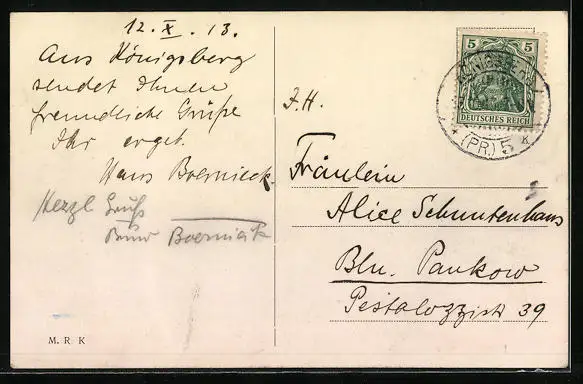 12. X. 13.
Aus Königsberg
sendet Ihnen
freundliche Grüße
Ihr ergeb.
Hans Boernieck.
Herzl Gruß
Boerniek
M. R. K
5 5
DEUTSCHES REICH
KÖNIGSBERG
* (PR.) 5 k
F. H.
Fräulein
Alice Schuntenhaus
Bln. Pankow
Pestalozzistr 39